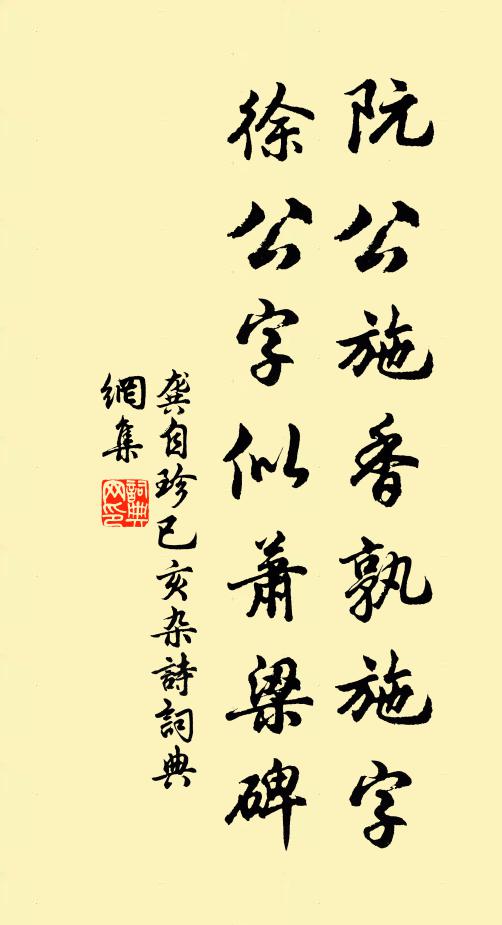 阮公施香孰施字
徐公字似蕭梁碑
龔自珍己亥杂詩詞典
網集
詞典
网印